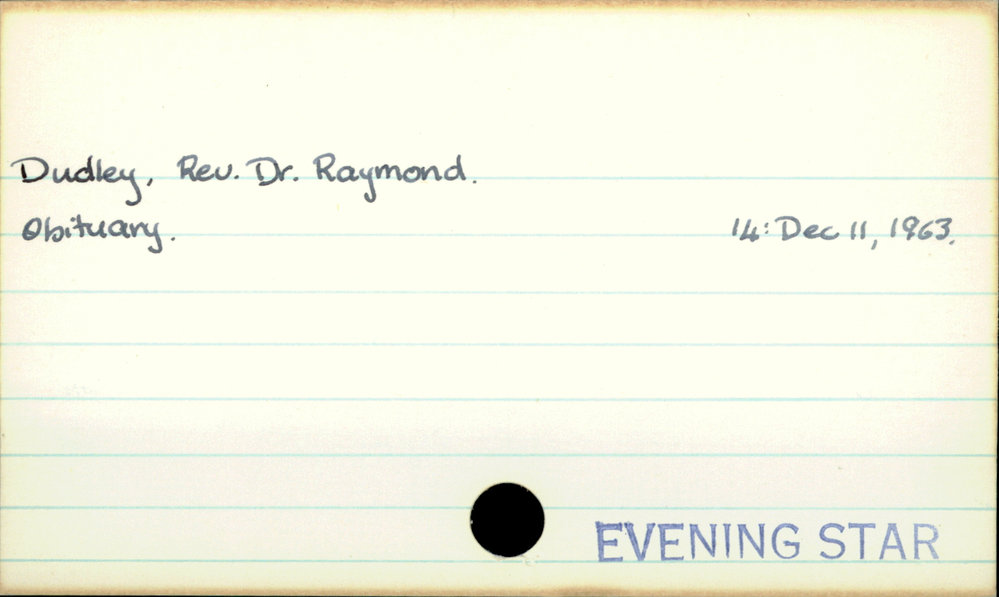 Dudley, Rev. Dr. Raymond.
Obituary. 14: Dec 11, 1963.
EVENING STAR